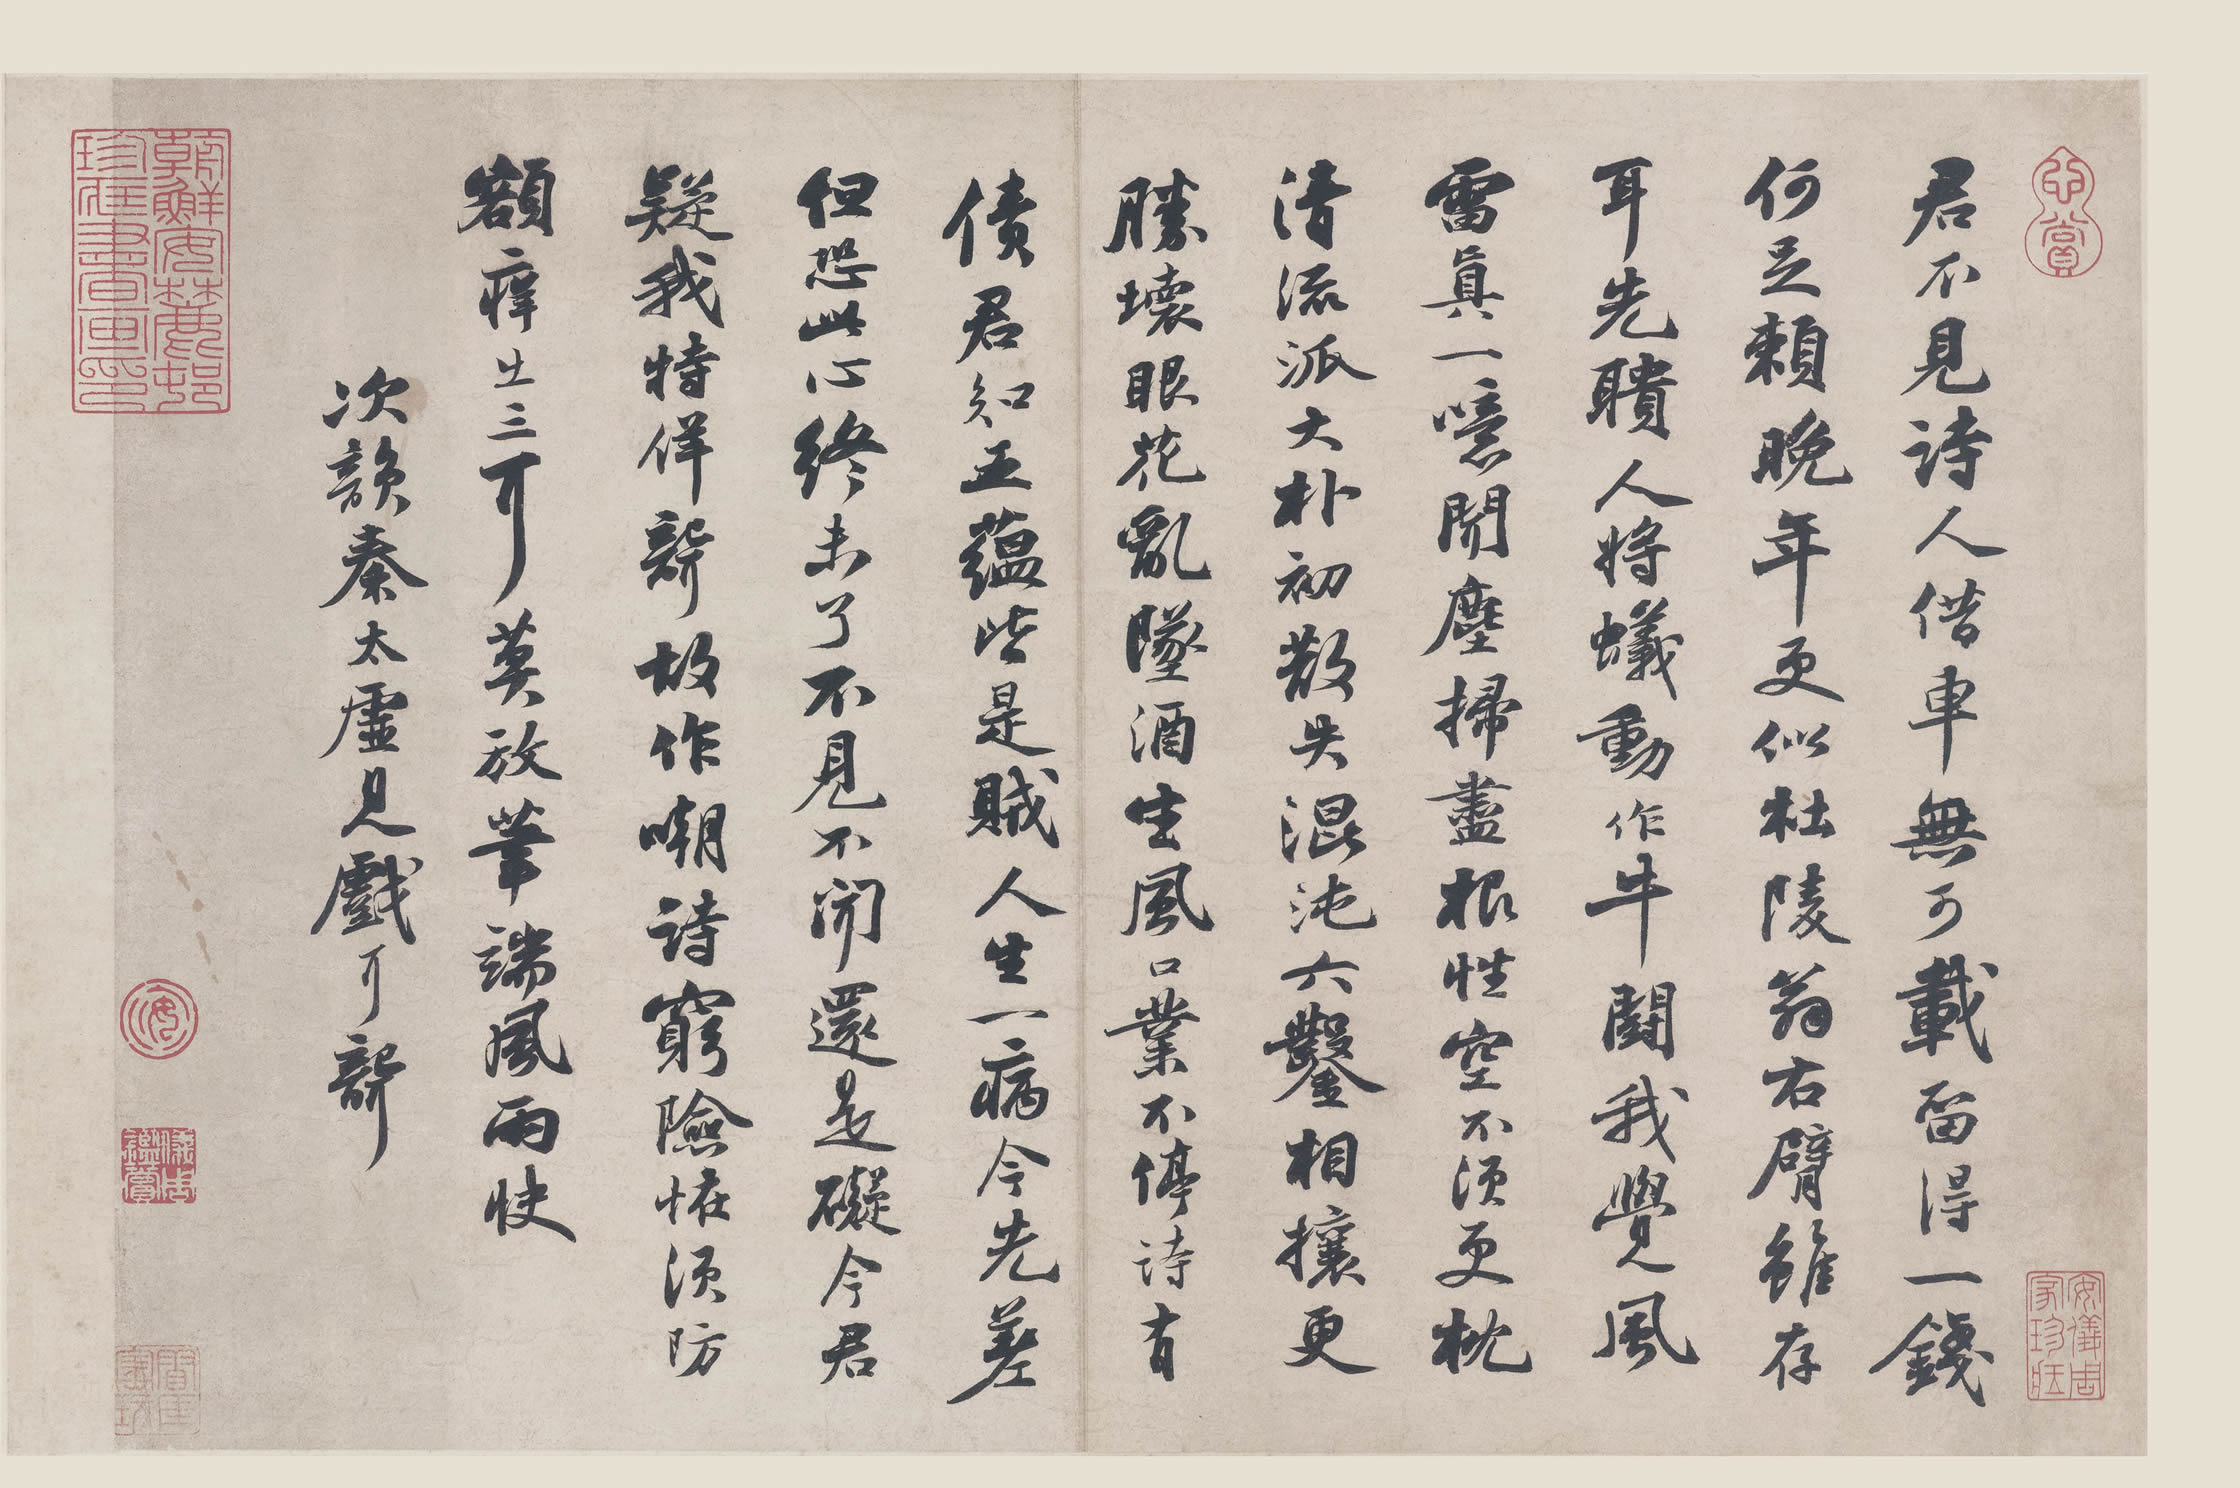 心賞
君不見詩人借車無可載留得一錢
何足賴晚年更似杜陵翁右臂雖存
耳先聵人將蟻動作牛鬪我覺風
雷真一噫聞塵掃盡根性空不須更枕
清流派大朴初散失混沌六鑿相攘更
勝壞眼花亂墜酒生風口業不停詩有
債君知五蘊皆是賊人生一病今先差
但恐此心終未了不見不聞還是礙今君
疑我特佯聾故作嘲詩窮險怪須防
額痒出三耳莫放筆端風雨快
次韻秦太虛見戲耳聾
安儀周家珍藏
朝鮮安麓邨珍藏書畫印
儀周鑑賞